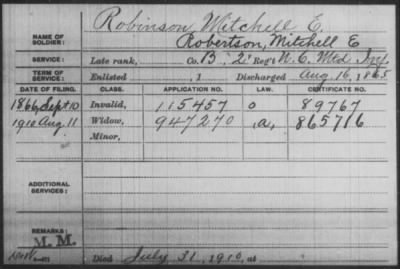 Robinson, Mitchell E.
NAME OF SOLDIER: Robertson, Mitchell E
SERVICE: Late rank, Co. B, 2 Reg't N. C. Mtd Inf.
TERM OF SERVICE: Enlisted , 1 Discharged Aug. 16, 1865
DATE OF FILING. CLASS. APPLICATION NO. LAW. CERTIFICATE NO.
1866, Sept 10 Invalid, 115457 o 89767
1910 Aug 11 Widow, 947270 a, 865716
Minor,
ADDITIONAL SERVICES:
REMARKS:
M. M.
Died July 31, 1910, at